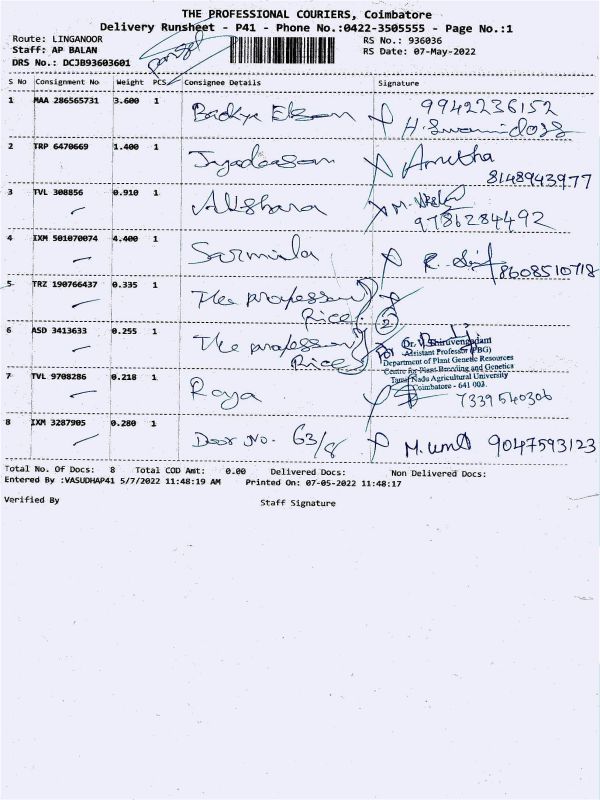 THE PROFESSIONAL COURIERS, Coimbatore
Delivery Runsheet - P41 - Phone No.:0422-3505555 - Page No.:1
Route: LINGANOOR RS No.: 936036
Staff: AP BALAN RS Date: 07-May-2022
DRS No.: DCJB93603601
S No Consignment No Weight PCS Consignee Details Signature
1 MAA 286565731 3.600 1 9942236152
H. Swamidoss
2 TRP 6470669 1.400 1 Amutha
8148943977
3 TVL 308856 0.910 1 Akshara
9786284492
4 IXM 501070074 4.400 1 Sarmila 8608510718
5 TRZ 190766437 0.335 1 The professor
Rice 2
6 ASD 3413633 0.255 1 The professor
Rice
Dr. V. Thiruvengadam
Assistant Professor (PBG)
Department of Plant Genetic Resources
Centre for Plant Breeding and Genetics
Tamil Nadu Agricultural University
Coimbatore - 641 003.
7 TVL 9708286 0.218 1 Roja 7339540306
8 IXM 3287905 0.280 1 Door No. 63/8 9047593123
Total No. Of Docs: 8 Total COD Amt: 0.00 Delivered Docs: Non Delivered Docs:
Entered By :VASUDHAP41 5/7/2022 11:48:19 AM Printed On: 07-05-2022 11:48:17
Verified By Staff Signature